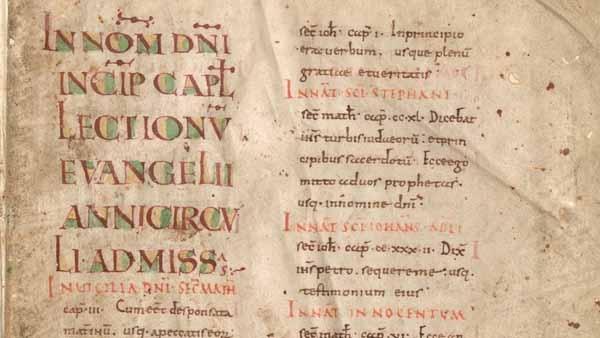 IN NOM DNI
INCIP CAPL
LECTIONV
EVANGELII
ANNI CIRCV
LI AD MISSS
IN VIGILIA DNI SEC MATH
cap iii Cum eet desponsata
mat usq a peccatis eoru
sec ioh cap i In principio
erat verbum, usque plenu
gratiae et veritatis
IN NAT SCI STEPHANI
sec math cap cc xl Dicebat
ihs turbis iudaeoru et prin
cipibus sacerdotu Ecce ego
mitto ad vos prophetas
usq in nomine dni
IN NAT SCI IOHANS
sec ioh cap cc xxx ii Dix
ihs petro sequere me usq
testimonium eius
IN NAT INNOCENTUM
sec math cap vi Ecce